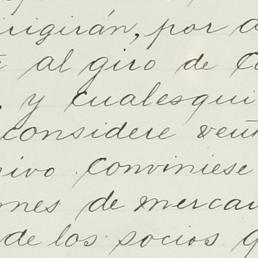 irigirán, por a
al giro de Co
, y cualesqui
considere vent
ivo conviniese
ones de mercan
de los socios q